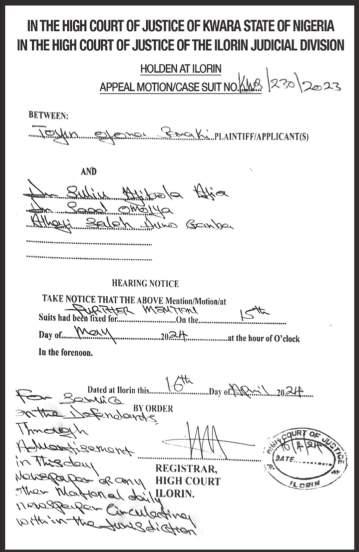 IN THE HIGH COURT OF JUSTICE OF KWARA STATE OF NIGERIA
IN THE HIGH COURT OF JUSTICE OF THE ILORIN JUDICIAL DIVISION
HOLDEN AT ILORIN
APPEAL MOTION/CASE SUIT NO. KWS/230/2023
BETWEEN:
PLAINTIFF/APPLICANT(S)
AND
Dr. Suliu Ajibola
Dr. Saad Omoiya
Alhaji Saleh
HEARING NOTICE
TAKE NOTICE THAT THE ABOVE Mention/Motion/at
FURTHER MENTION
Suits had been fixed for On the 15th
Day of May 2024 at the hour of O'clock
In the forenoon.
Dated at Ilorin this 16th Day of April 2024
For Service
on the Defendants
BY ORDER
Through
Advertisement
in Thisday
REGISTRAR,
Newspaper or any
HIGH COURT
other National daily
ILORIN.
newspaper Circulating
within the Jurisdiction
HIGH COURT OF JUSTICE
DATE
ILORIN